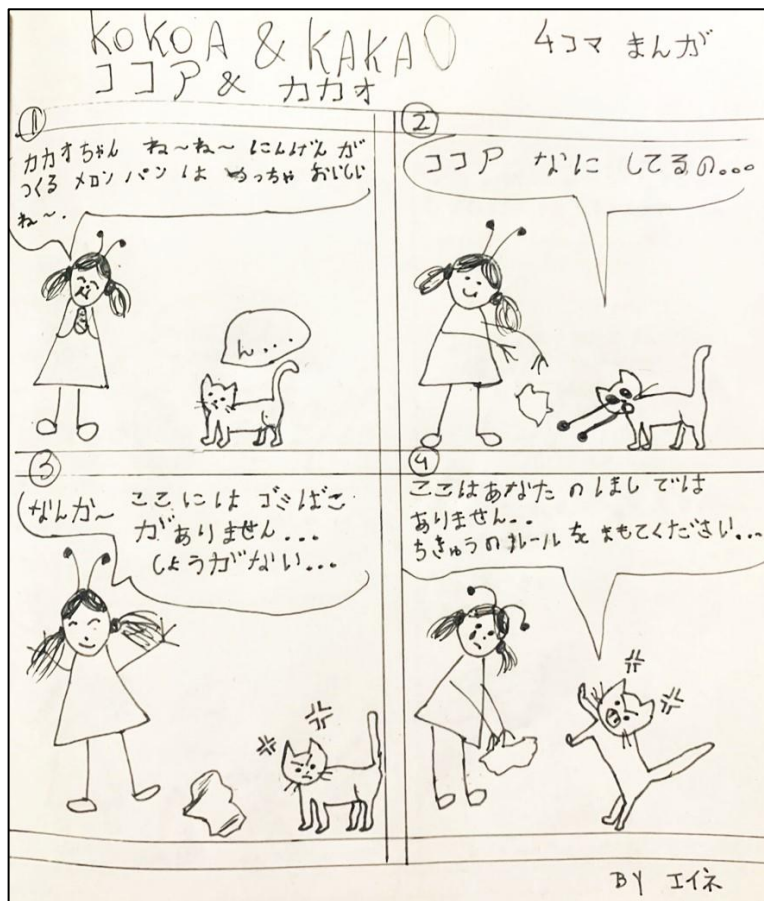 KOKOA & KAKAO
ココア & カカオ
4コマ まんが
①
カカオちゃん ね〜ね〜 にんげん が
つくる メロン パン は めっちゃ おいしい
ね〜.
ん...
②
ココア なに してるの...
③
なんか〜 ここ には ゴミばこ
が ありません...
しょうがない...
④
ここは あなた の ほし では
ありません..
ちきゅうの ルール を まもてください...
BY エイネ